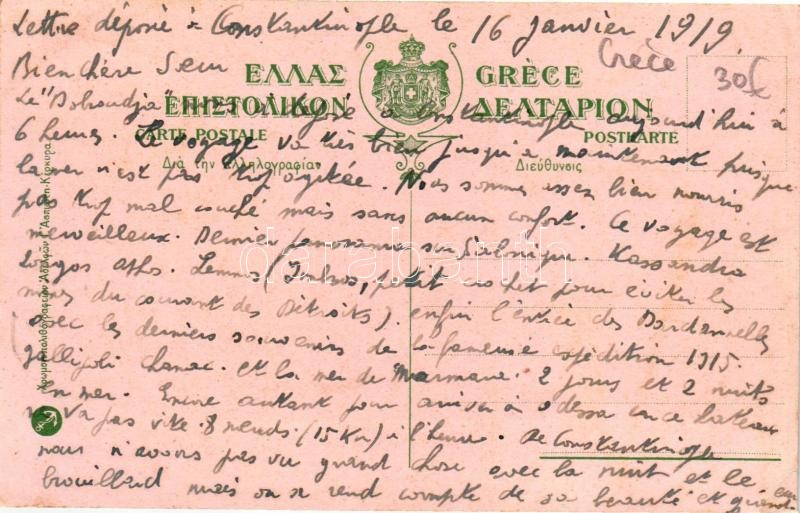 Lettre déposé à Constantinople le 16 janvier 1919.
Grèce
30f
Bien chère Seur
ΕΛΛΑΣ GRÈCE
Le "Dobroudja" mis à à Constantinople aujourd'hui à
ΕΠΙΣΤΟΛΙΚΟΝ ΔΕΛΤΑΡΙΟΝ
CARTE POSTALE POSTKARTE
6 heures. Le voyage va très bien jusqu'à maintenant puisque
Διὰ τὴν ἀλληλογραφίαν Διεύθυνσις
la mer n'est pas trop agitée. Nous sommes assez bien nourris
pas trop mal couché mais sans aucun confort. Ce voyage est
merveilleux. Dernier panorama sur Salonique. Kassandra
Longos Athos. Lemnos (Imbros, petit crochet pour éviter les
mines du courant des Détroits) enfin l'entrée des Dardanelles
avec les derniers souvenirs de la fameuse expédition 1915.
Gallipoli Chanac. et la mer de Marmara. 2 jours et 2 nuits
en mer. Encore autant pour arriver à Odessa car ce bateau
ne va pas vite. 8 neuds. (15 Km) à l'heure. De Constantinople
nous n'avons pas vu grand chose avec la nuit et le
brouillard mais on se rend compte de sa beauté et
Χρωμολιθογραφεῖον Ἀδελφῶν Γ. Ἀσπιώτη-Κέρκυρα
darabanth